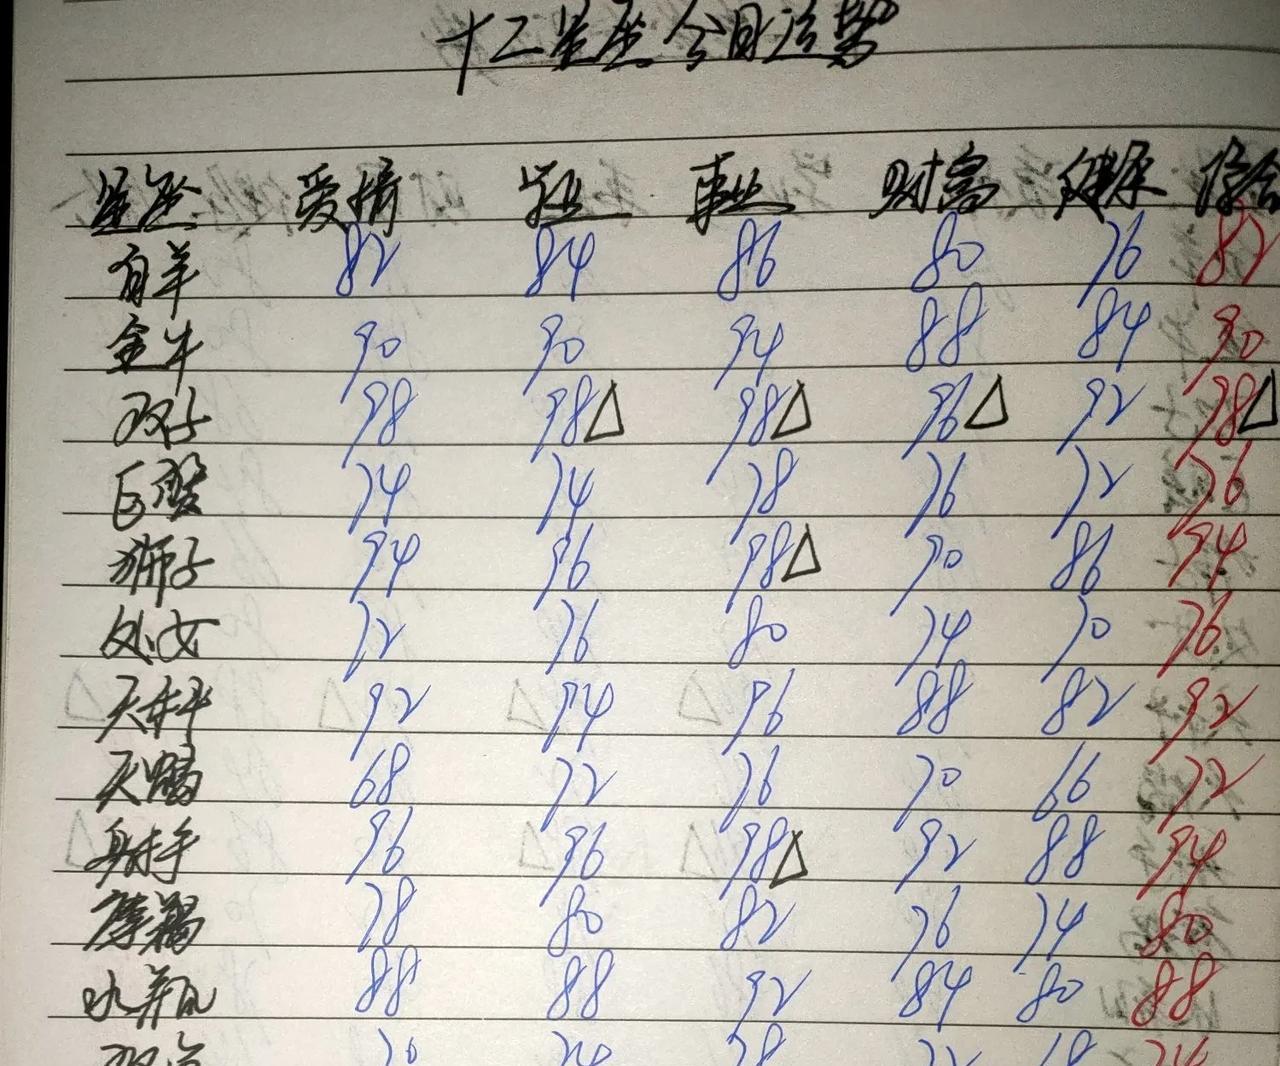 十二星座今日运势
星座 爱情 学业 事业 财富 健康 综合
白羊 82 84 86 80 76 82
金牛 90 90 94 88 84 90
双子 98 98△ 98△ 96△ 92 98△
巨蟹 74 74 78 76 72 76
狮子 94 96 98△ 90 86 94
处女 72 76 80 74 70 76
天秤 92 94 96 88 82 92
天蝎 68 72 76 70 66 72
射手 96 96 98△ 92 88 94
摩羯 78 80 82 76 74 80
水瓶 88 88 92 84 80 88